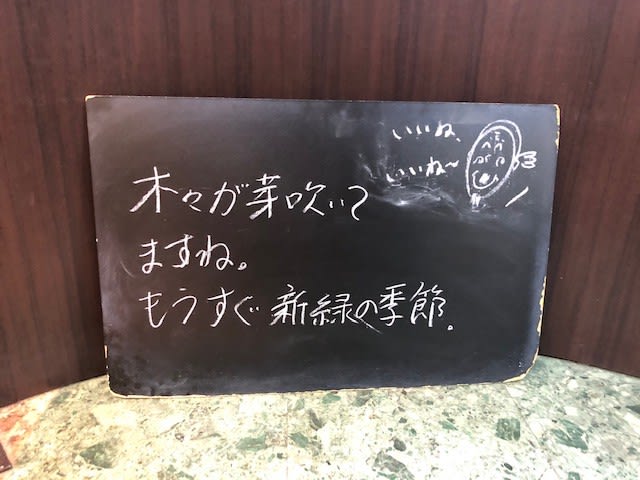 木々が芽吹いて
ますね。
もうすぐ新緑の季節.
いいね、
いいね〜